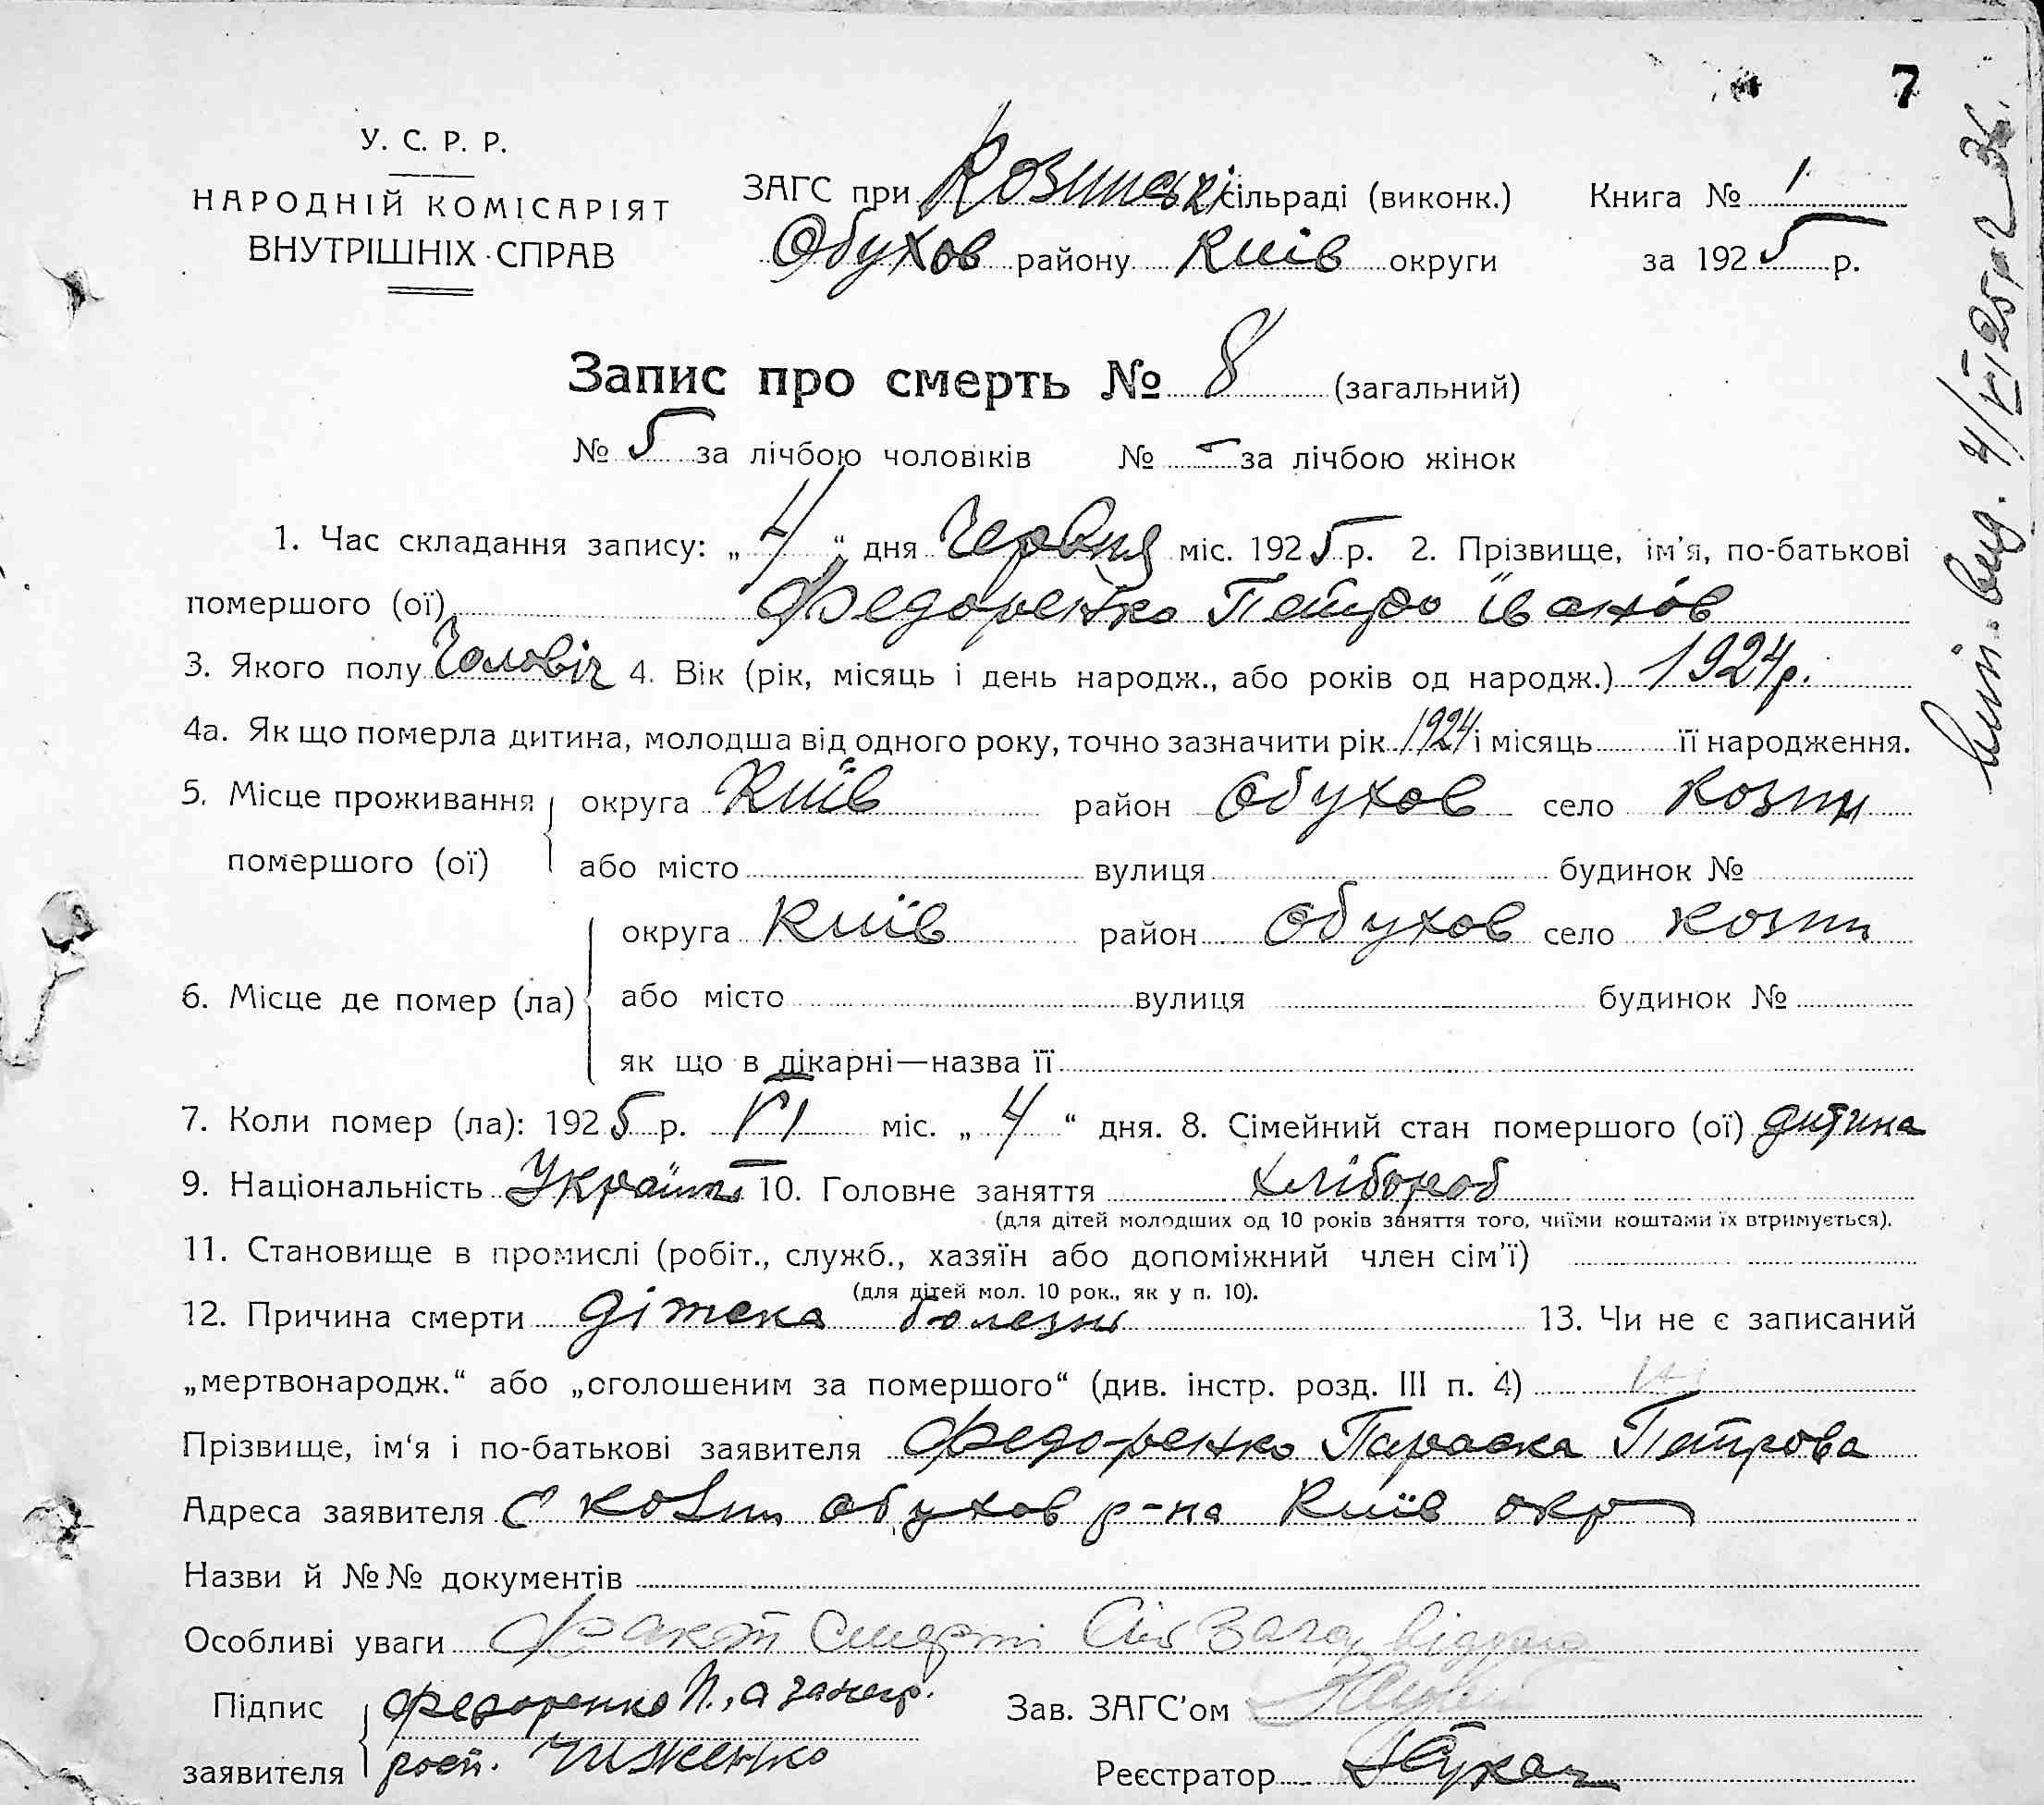 7
У. С. Р. Р.
НАРОДНІЙ КОМІСАРІЯТ
ВНУТРІШНІХ СПРАВ
ЗАГС при Козинські сільраді (виконк.) Книга № 1
Обухов району Київ округи за 1925 р.
Запис про смерть № 8 (загальний)
№ 5 за лічбою чоловіків № – за лічбою жінок
1. Час складання запису: „4“ дня Червня міс. 1925 р. 2. Прізвище, ім’я, по-батькові
помершого (ої) Федоренко Петро Іванов
3. Якого полу Чоловіч 4. Вік (рік, місяць і день народж., або років од народж.) 1924 р.
4а. Як що померла дитина, молодша від одного року, точно зазначити рік 1924 і місяць її народження.
5. Місце проживання округа Київ район Обухов село Козин
помершого (ої) або місто вулиця будинок №
округа Київ район Обухов село Козин
6. Місце де помер (ла) або місто вулиця будинок №
як що в лікарні—назва її
7. Коли помер (ла): 1925 р. VI міс. „4“ дня. 8. Сімейний стан помершого (ої) дитина
9. Національність 10. Головне заняття хлібороб
(для дітей молодших од 10 років заняття того, чиїми коштами їх втримується).
11. Становище в промислі (робіт., служб., хазяїн або допоміжний член сім’ї)
(для дітей мол. 10 рок., як у п. 10).
12. Причина смерти дітска болезнь 13. Чи не є записаний
„мертвонародж.“ або „оголошеним за помершого“ (див. інстр. розд. III п. 4)
Прізвище, ім‘я і по-батькові заявителя Федоренко Параска Петрова
Адреса заявителя С Козин Обухов р-на Київ окр
Назви й №№ документів
Особливі уваги Факт смерти
Підпис Федоренко П., а Зав. ЗАГС’ом
заявителя росп. Реєстратор
4/VI 25 р.